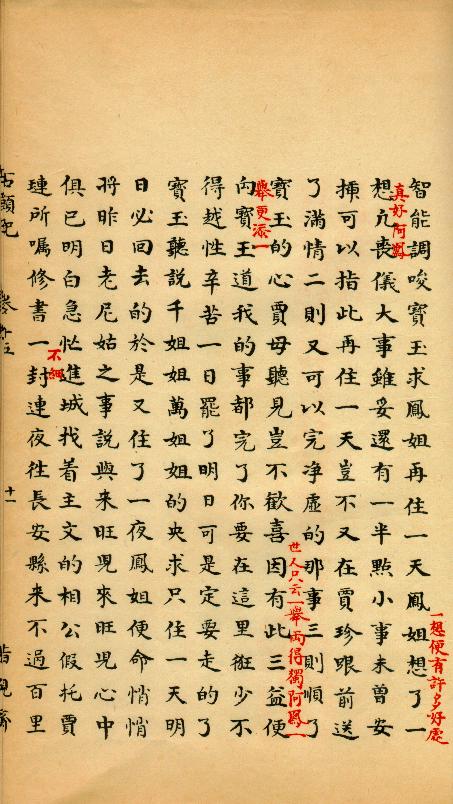 智能調唆寳玉求鳳姐再住一天鳳姐想了一
一想便有許多好處
真好阿鳳
想凢喪儀大事雖妥還有一半點小事未曽安
揷可以指此再住一天豈不又在賈珍眼前送
了滿情二則又可以完净虚的那事三則順了
世人只云一舉両得獨阿鳳一
舉更添一
寳玉的心賈母聽見豈不歡喜因有此三益便
向寳玉道我的事都完了你要在這里逛少不
得越性辛苦一日罷了明日可是定要走的了
寳玉聽說千姐姐萬姐姐的央求只住一天明
日必回去的於是又住了一夜鳳姐便命悄悄
將昨日老尼姑之事說與来旺児來旺児心中
俱已明白急忙進城找着主文的相公假托賈
不細
璉所嘱修書一封連夜徃長安縣来不過百里
十一